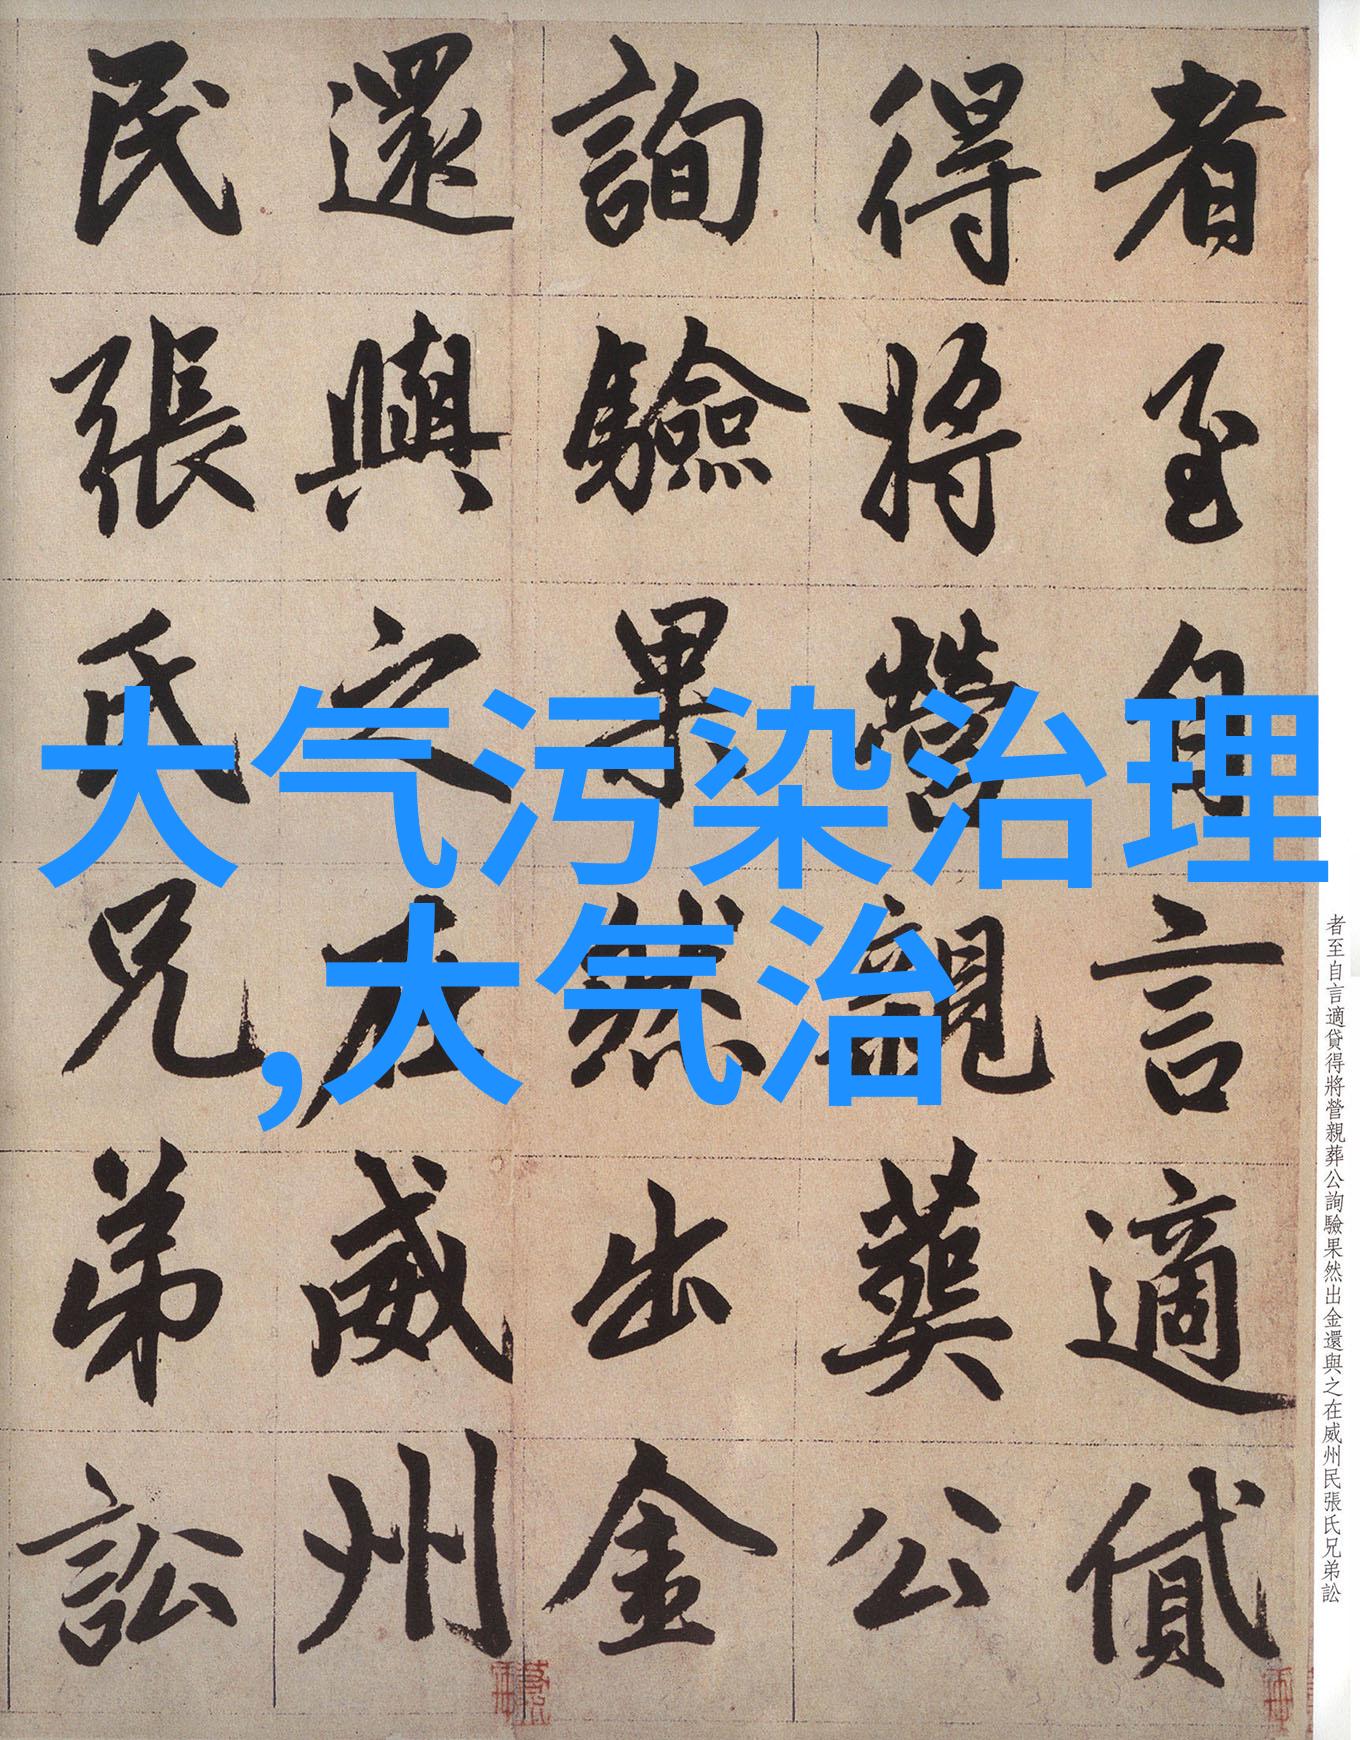 者至自言適貸
得將營親葬公
詢驗果然出金
還與之在威州
民張氏兄弟訟
大气污染治理
,大气治
者至自言適貸得將營親葬公詢驗果然出金還與之在威州民張氏兄弟訟